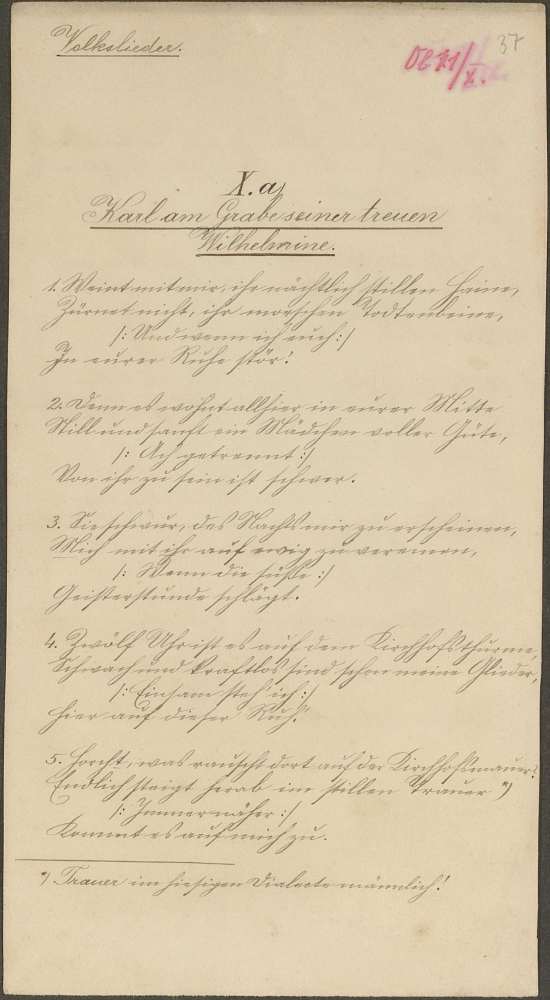 Volkslieder.
37
X. a)
Karl am Grabe seiner treuen
Wilhelmine.
1. Weint mit mir, ihr nächtlich stillen Haine,
Zürnet nicht, ihr morschen Todtenbeine,
/: Und wenn ich euch :/
In eurer Ruhe stör'.
2. Denn es wohnt allhier in eurer Mitte
Still und sanft ein Mädchen voller Güte,
/: Ach getrennt :/
Von ihr zu sein ist schwer.
3. Sie schwur, des Nachts mir zu erscheinen,
Mich mit ihr auf ewig zu vereinen,
/: Wenn die süße :/
Geisterstunde schlägt.
4. Zwölf Uhr ist es auf dem Kirchhofsthurme,
Schwach und kraftlos sind schon meine Glieder,
/: Einsam steh' ich :/
Hier auf dieser Ruh'.
5. Horcht, was rauscht dort auf der Kirchhofsmauer?
Endlich steigt herab im stillen Trauer *)
/: Immer näher :/
Kommt es auf mich zu.
*) Trauer im hiesigen Dialecte männlich!